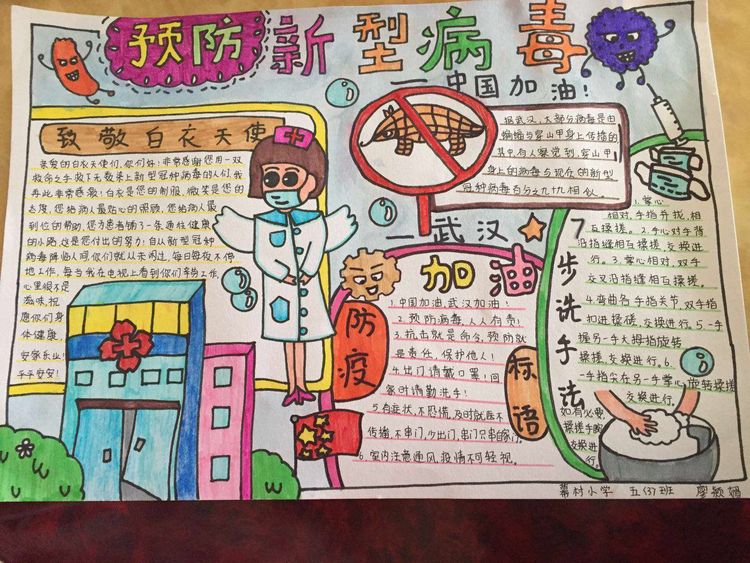 预防新型病毒
一中国加油!
致敬白衣天使
亲爱的白衣天使们,你们好!非常感谢您用一双
救命之手救下无数染上新型冠种病毒的人们,我
再此非常感激!白衣是您的制服,微笑是您的
态度,您给病人最贴心的照顾,您给病人最
到位的帮助,您为患者铺了一条通往健康
的小路,这是您付出的努力!自从新型冠种
病毒降临人间你们就从未闭过,每日每夜不停
地工作,每当我在电视上看到你们奔跑工作,
心里很不是
滋味,祝
愿你们身
体健康,
安家乐业!
平平安安!
据武汉,大部分病毒是由
蝙蝠与穿山甲身上传播的
其中,有人察觉到,穿山甲
身上的病毒与现在的新型
冠种病毒百分之九九相似。
一武汉
加油
防疫
标语
1.中国加油,武汉加油!
2.预防病毒,人人有责!
3.抗击就是命令,预防就
是责任,保护他人!
4.出门请戴口罩,回
家时请勤洗手!
5.有症状,不恐慌,及时就医不
传播,不串门,少出门,串门只串自家门。
6.室内注意通风,疫情不可轻视。
7步洗手法
1.掌心
相对,手指并拢,相
互揉搓。2.手心对手背
沿指缝相互揉搓,交换进
行。3.掌心相对,双手
交叉沿指缝相互揉搓。
4.弯曲各手指关节,双手指
扣进揉搓,交换进行。5.一手
握另一手大拇指旋转
揉搓,交换进行。6.
一手指尖在另一手掌心旋转揉搓
交换进行。
如有必要,
揉搓手腕
交换进
行。
小学 五(3)班 廖颖娟